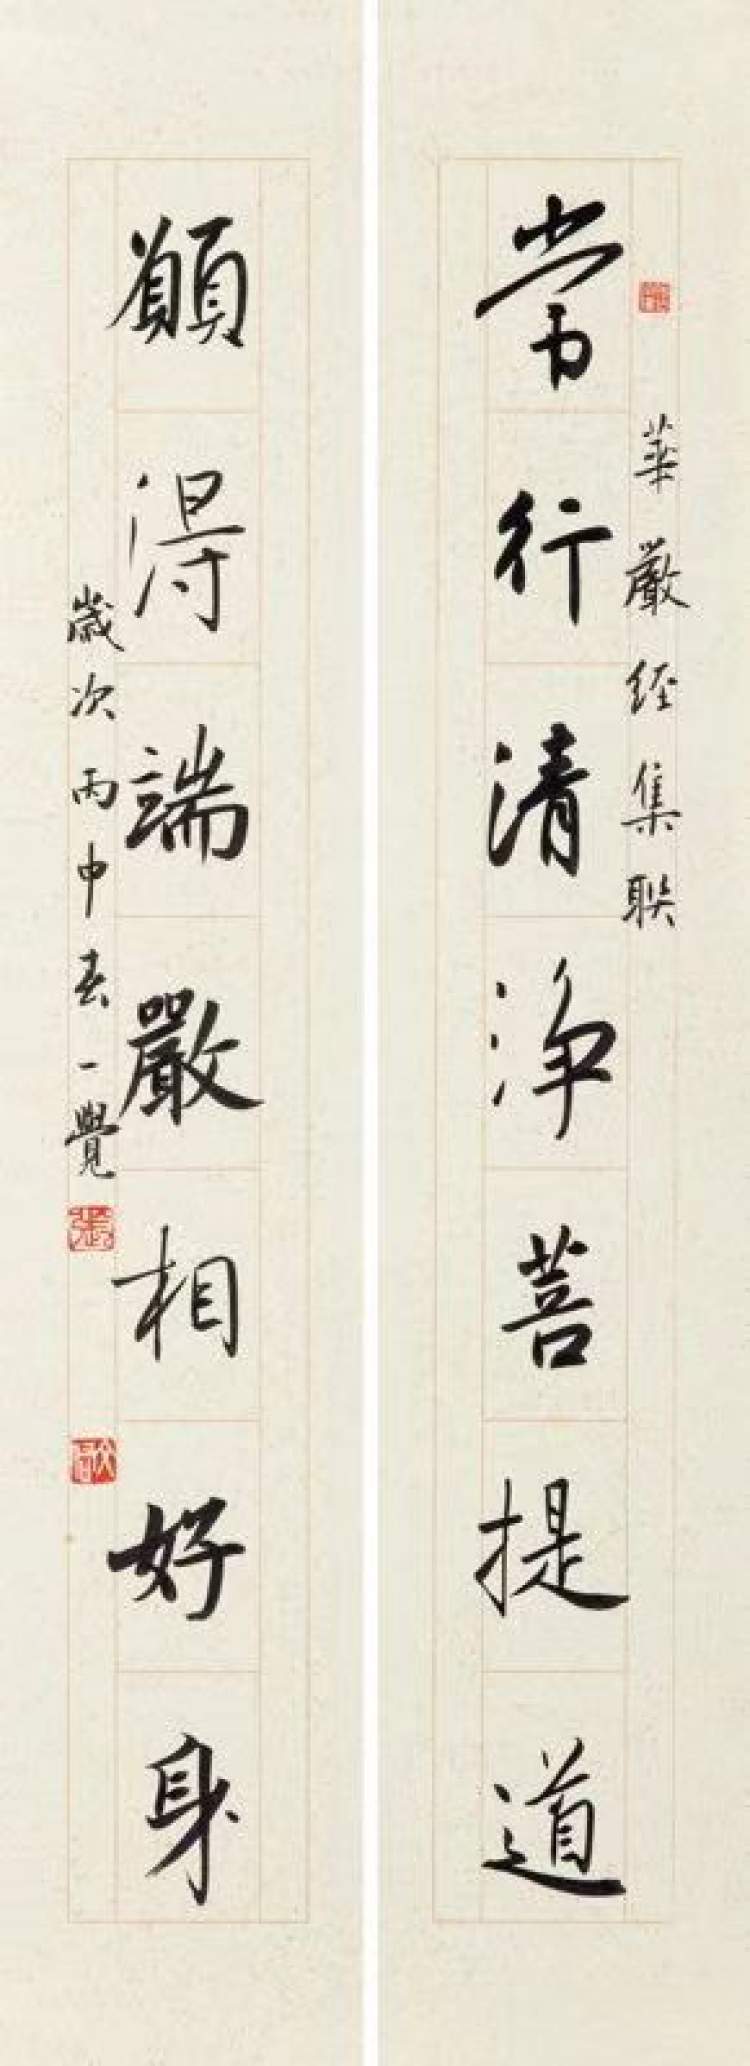 常行清淨菩提道
華嚴經集聯
願得端嚴相好身
歲次丙申春一覺
張